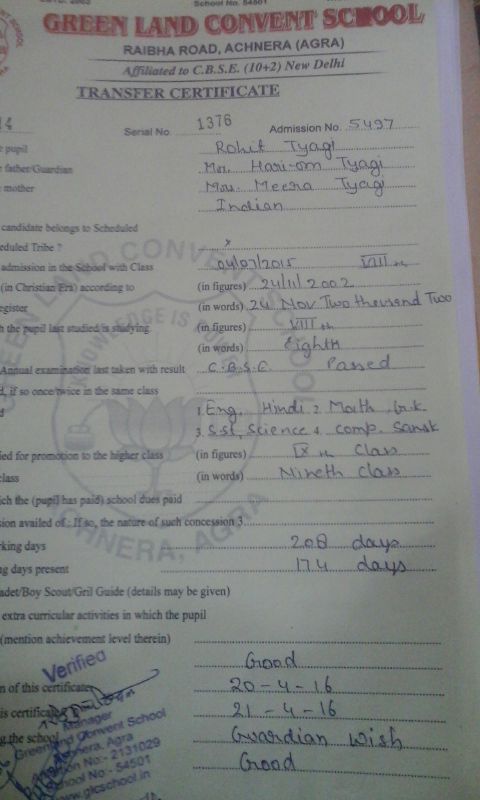 School No. 54501
GREEN LAND CONVENT SCHOOL
RAIBHA ROAD, ACHNERA (AGRA)
Affiliated to C.B.S.E. (10+2) New Delhi
TRANSFER CERTIFICATE
14 Serial No. 1376 Admission No. 5497
pupil Rohit Tyagi
father/Guardian Mr. Hari-om Tyagi
mother Mrs. Meera Tyagi
Indian
candidate belongs to Scheduled
eduled Tribe ? x
admission in the School with Class 04/07/2015 VIII th
(in Christian Era) according to (in figures) 24/11/2002
egister (in words) 24 Nov Two thousand Two
h the pupil last studied/is studying (in figures) VIII th
(in words) Eighth
Annual examination last taken with result C.B.S.C. Passed
d, if so once/twice in the same class
d 1. Eng. Hindi 2. Math G.K.
3. S.st, Science 4. Comp. Sansk
ied for promotion to the higher class (in figures) IX th Class
class (in words) Nineth Class
ich the (pupil has paid) school dues paid
sion availed of : If so, the nature of such concession 3
rking days 208 days
ng days present 174 days
adet/Boy Scout/Gril Guide (details may be given)
extra curricular activities in which the pupil
(mention achievement level therein)
Good
n of this certificate 20-4-16
is certificate 21-4-16
g the school Guardian wish
Good
Verified
Manager
Green Land Convent School
Achnera, Agra
ation No:- 2131029
School No:- 54501
www.glcschool.in
GREEN LAND CONVENT SCHOOL
KNOWLEDGE IS
ACHNERA, AGRA